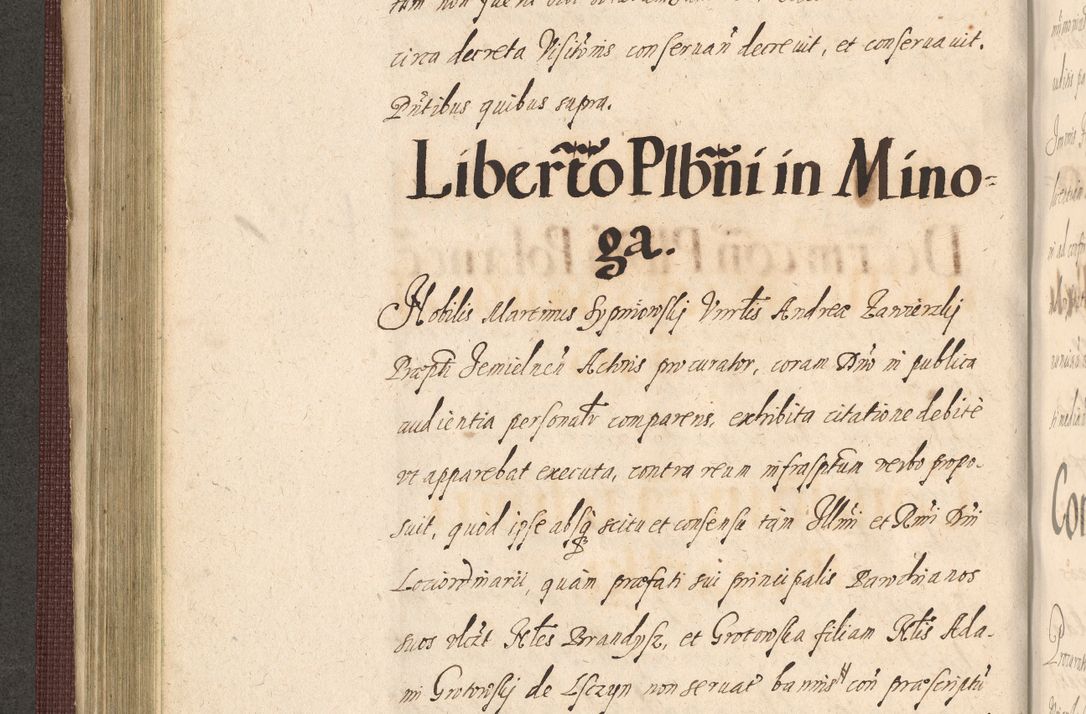 circa decreta Visitoris conservan̄ decrevit, et conservavit.
Pn̄tibus quibus supra.
Liber̄t̄o Plbñi in Mino-
ga.
Nobilis Martinus Sypniowskj Vnrlis Andreæ Zawierzkj
Præpti Jemielnen̄ Actoris procurator, coram Dn̄o in publica
audientia personalr̄ comparens, exhibita citatione debitè
vt apparebat executa, contra reum infrasptum verbo propo-
suit, quòd ipse absq̨ scitu et consensu tàm Illm̄i et Rm̄i Dn̄i
Lociordinarii, quàm præfati sui principalis Parochianos
suos vlczt Nłes Brandysz, et Grotowska filiam Nłis Ada-
mi Grotowskj de Lsczyn non servat̄ bannis con̄ præscriptū